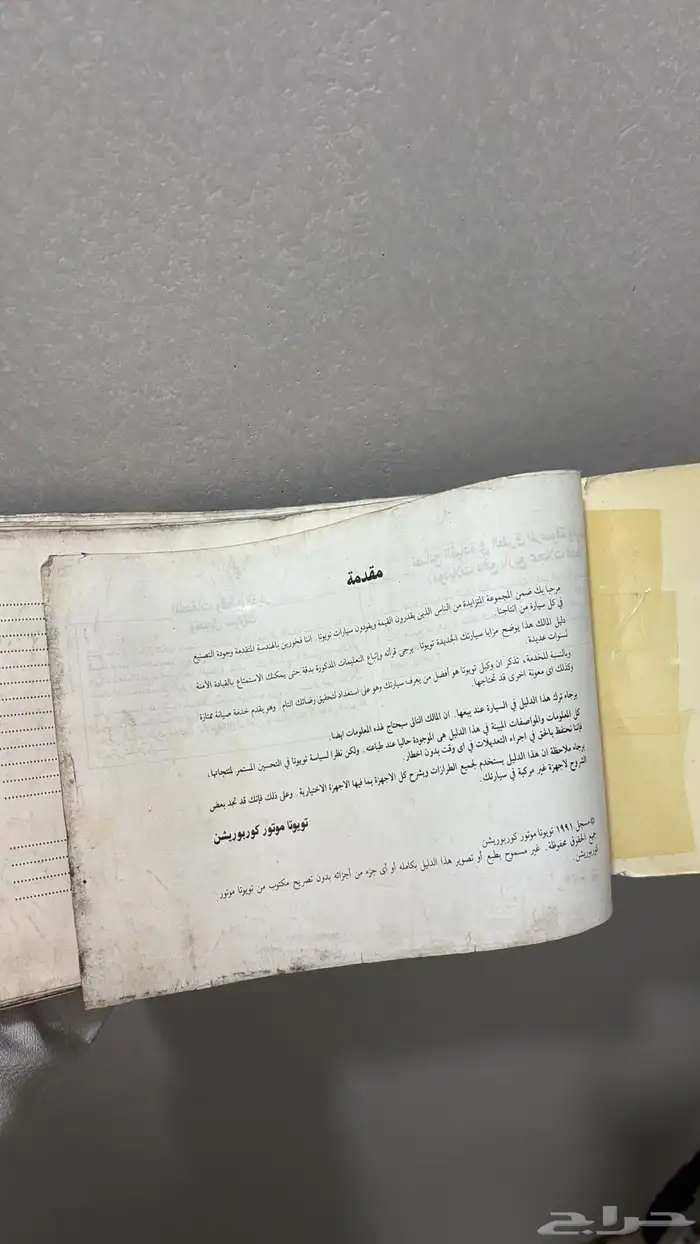 مقدمة
مرحبا بك ضمن المجموعة المتزايدة من الناس الذين يقدرون القيمة ويقودون سيارات تويوتا. اننا فخورين بالهندسة المتقدمة وجودة التصنيع
في كل سيارة من انتاجنا.
دليل المالك هذا يوضح مزايا سيارتك الجديدة تويوتا. يرجى قرائه واتباع التعليمات المذكورة بدقة حتى يمكنك الاستمتاع بالقيادة الآمنة
لسنوات عديدة
وبالنسبة للخدمة، تذكر ان وكيل تويوتا هو أفضل من يعرف سيارتك وهو على استعداد لتحقيق رضائك التام. وهو يقدم خدمة صيانة ممتازة
وكذلك اى معونة اخرى قد تحتاجها.
برجاء ترك هذا الدليل في السيارة عند بيعها. ان المالك التالى سيحتاج لهذه المعلومات ايضا.
كل المعلومات والمواصفات المبينة في هذا الدليل هى الموجودة حاليا عند طباعته. ولكن نظرا لسياسة تويوتا في التحسين المستمر لمنتجاتها،
فإننا نحتفظ بالحق في اجراء التعديلات في اى وقت بدون اخطار.
برجاء ملاحظة ان هذا الدليل يستخدم لجميع الطرازات ويشرح كل الاجهزة بما فيها الاجهزة الاختيارية. وعلى ذلك فإنك قد تجد بعض
الشروح لأجهزة غير مركبة في سيارتك.
تويوتا موتور كوربوريشن
©مسجل ١٩٩١ تويوتا موتور كوربوريشن
جميع الحقوق محفوظة. غير مسموح بطبع أو تصوير هذا الدليل بكامله أو أى جزء من أجزائه بدون تصريح مكتوب من تويوتا موتور
كوربوريشن.
حراج